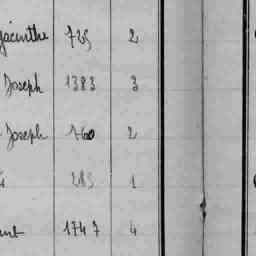 Hyacinthe 725 2
Joseph 1383 3
Joseph 760 2
285 1
1747 4